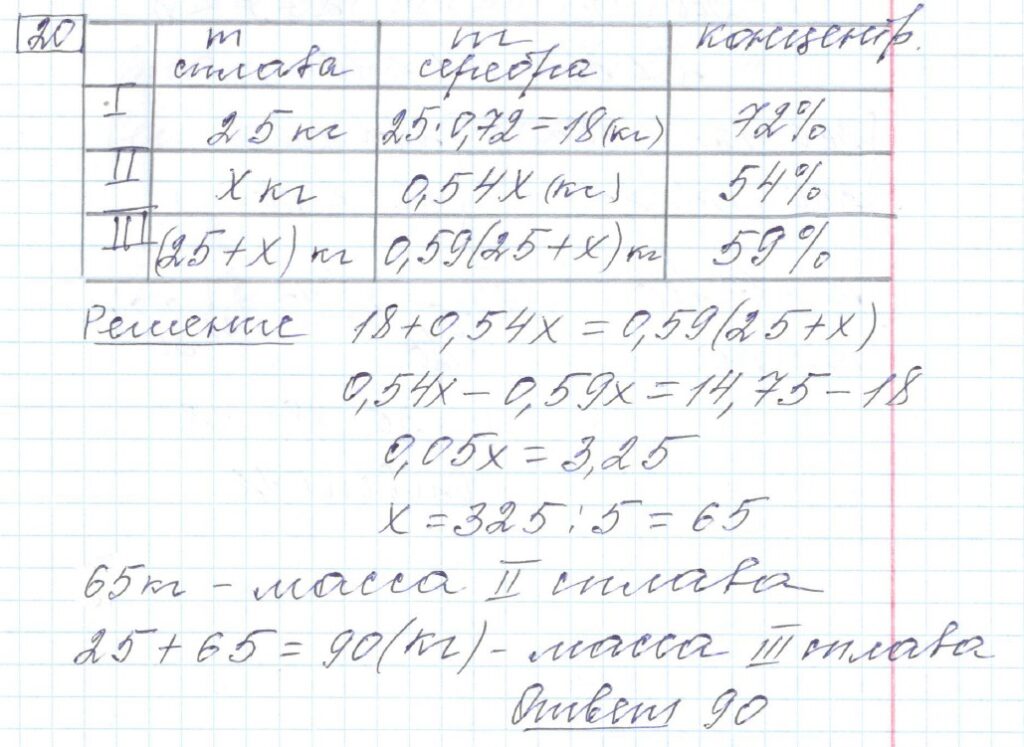 20
m сплава m серебра концентр.
I 25 кг 25·0,72=18(кг) 72%
II x кг 0,54x (кг) 54%
III (25+x) кг 0,59(25+x) кг 59%
Решение 18+0,54x=0,59(25+x)
0,54x-0,59x=14,75-18
0,05x=3,25
x=325:5=65
65кг - масса II сплава
25+65=90(кг)- масса III сплава
Ответ 90